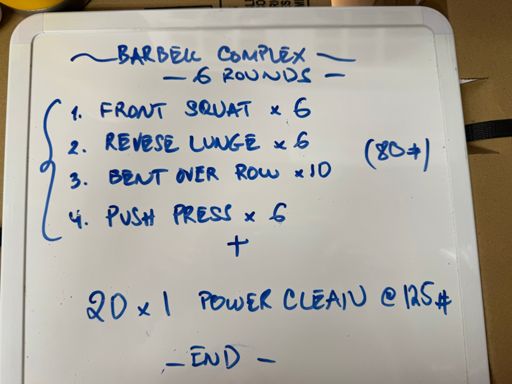 ~ BARBELL COMPLEX ~
- 6 ROUNDS -
1. FRONT SQUAT x 6
2. REVESE LUNGE x 6
(80#)
3. BENT OVER ROW x 10
4. PUSH PRESS x 6
+
20 x 1 POWER CLEAN @ 125#
- END -